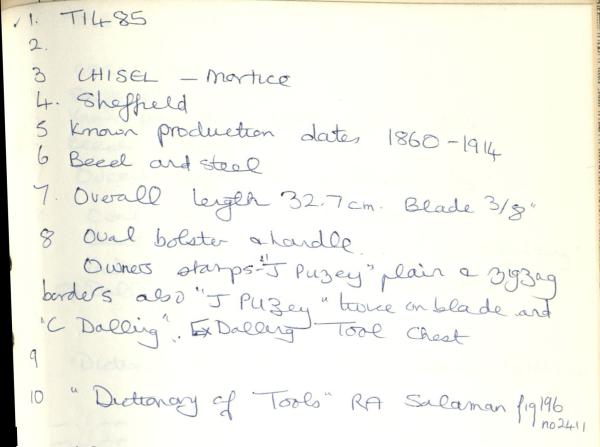 ✓ 1. T1485
2.
3 CHISEL – Mortice
4. Sheffield
5 Known production dates 1860-1914
6 Beech and steel
7. Overall length 32.7cm. Blade 3/8"
8 Oval bolster & handle
Owners stamps - "J Puzey" plain & zigzag
borders also "J PUZey" twice on blade and
"C Dalling". Ex Dalling Tool Chest
9
10 "Dictionary of Tools" RA Salaman fig 196
no 2411